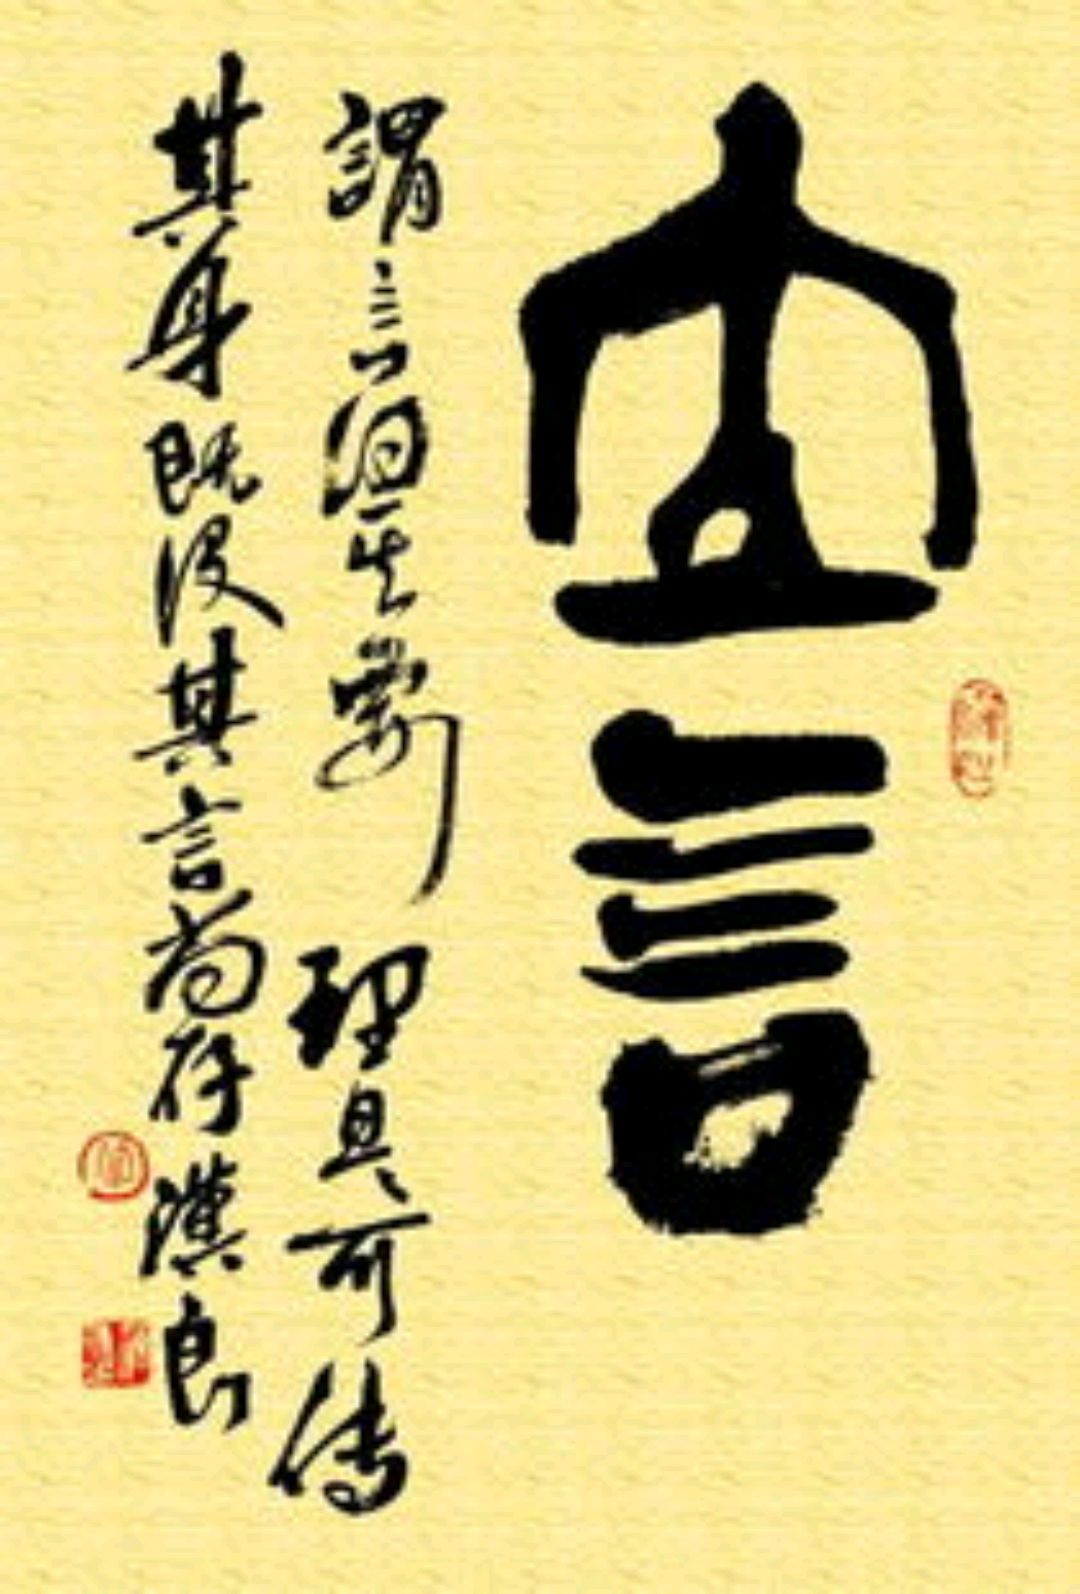 立言
謂言得其要理具可傳
其身既没其言尚存漢良